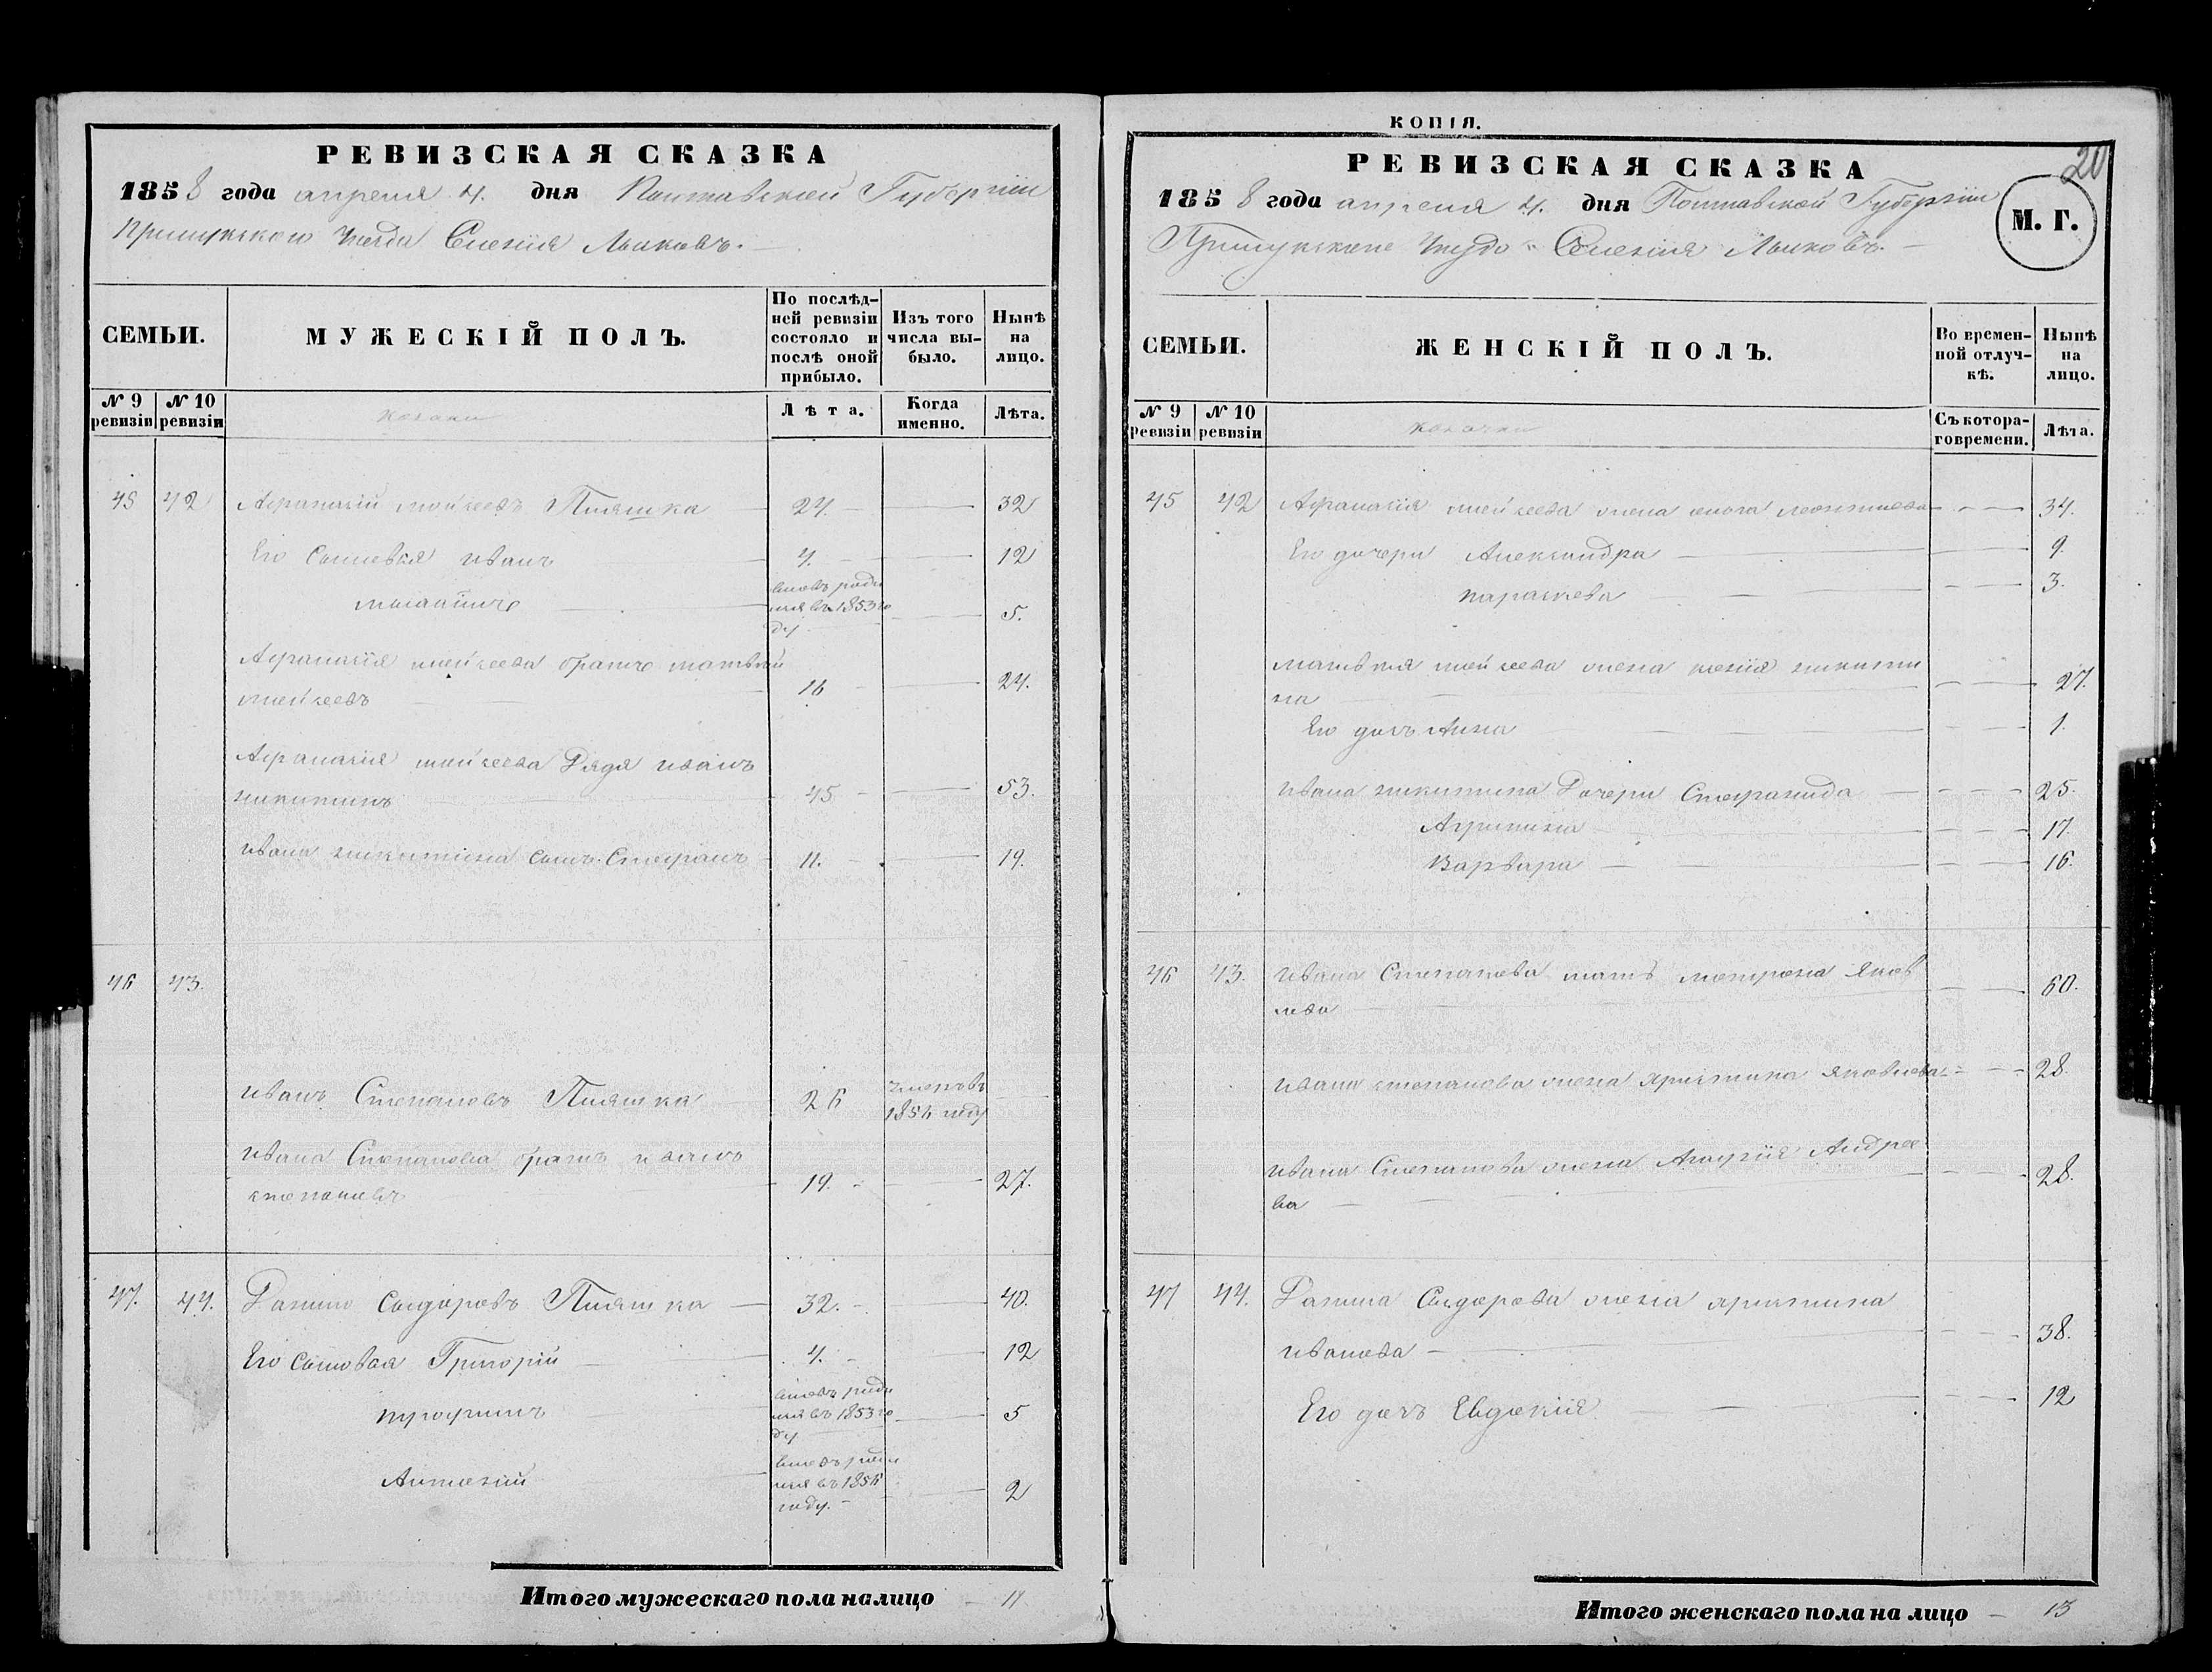 РЕВИЗСКАЯ СКАЗКА
1858 года апреля 4. дня Полтавской Губернiи
Прилукского Уезда Селенiя Лыковъ.
СЕМЬИ.
МУЖЕСКІЙ ПОЛЪ.
По послѣд-
ней ревизіи
состояло и
послѣ оной
прибыло.
Изъ того
числа вы-
было.
Нынѣ
на
лицо.
№ 9
ревизіи
№ 10
ревизіи
козаки
Лѣта.
Когда
именно.
Лѣта.
45 42 Афанасiй Мойсеевъ Пляшка 24. 32
Его Сыновья иванъ 4. 12
вновь роди
лся въ 1853 го
ду 5.
Афанасiя мойсеева братъ матвѣй
мойсеевъ 16 24.
Афанасiя мойсеева Дядя иванъ
никитинъ 45 53.
ивана никитина сынъ Стефанъ 11. 19.
46 43.
иванъ Степановъ Пляшка 26 умеръ въ
1856 году
ивана Степанова братъ иванъ
степановъ 19. 27.
47. 44. Данило Сыдоровъ Пляшка 32. 40.
Его Сыновья Григорiй 4. 12
трофимъ вновь роди
лся въ 1853 го
ду 5
вновь роди
лся въ 1856
году. 2
Итого мужескаго пола налицо 11
КОПІЯ.
20
РЕВИЗСКАЯ СКАЗКА
1858 года апреля 4. дня Полтавской Губернiи
Прилукского Уезда Селенiя Лыковъ.
М. Г.
СЕМЬИ.
ЖЕНСКІЙ ПОЛЪ.
Во времен-
ной отлуч-
кѣ.
Нынѣ
на
лицо.
№ 9
ревизіи
№ 10
ревизіи
козачки
Съ котора-
го времени.
Лѣта.
45 42 Афанасiя мойсеева жена леонтиева 34.
Его дочери Александра 9.
параскева 3.
матвѣя мойсеева жена ксенiя никити
на 27.
Его дочь Анна 1.
ивана никитина Дочери Стефанида 25.
Агрипина 17.
Варвара 16.
46 43. ивана Степанова мать мотрона Яков
лева 60.
ивана степанова жена христина яковлева 28.
ивана Степанова жена Агафiя Андрее
ва 28.
47 44. Данила Сидорова жена христина
иванова 38.
Его дочь Евдокiя 12
Итого женскаго пола на лицо 13